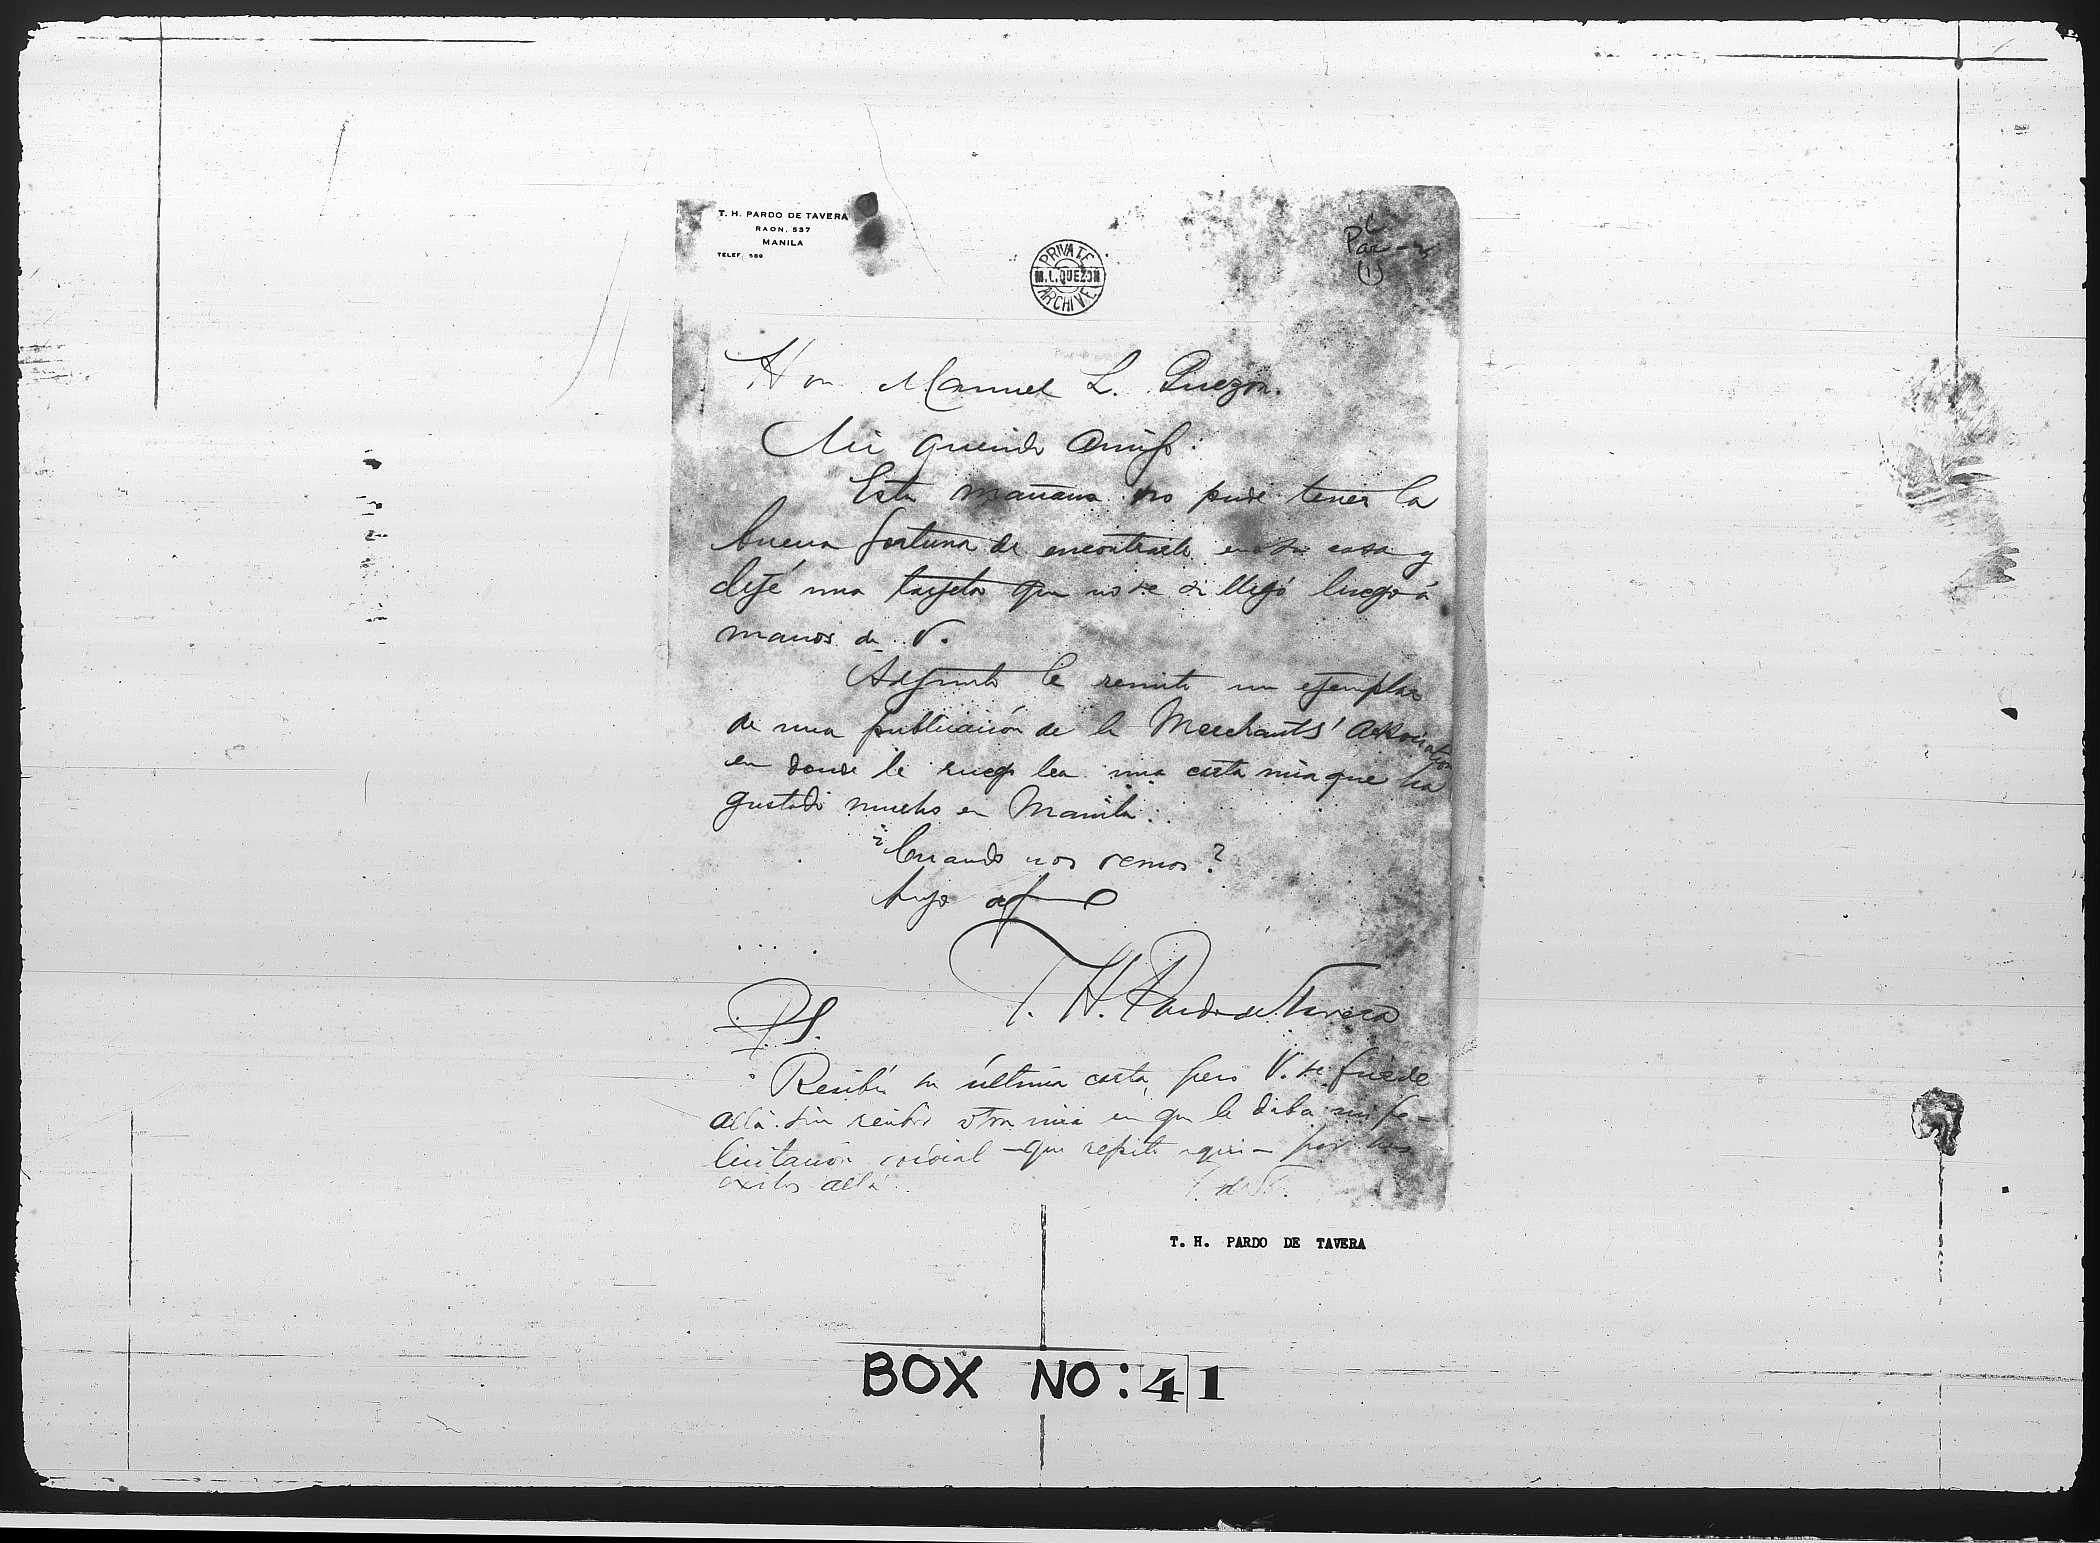 T. H. PARDO DE TAVERA
RAON, 537
MANILA
TELEF. 589
PRIVATE
M.L.QUEZON
ARCHIVE
Par
(1)
Hon. Manuel L. Quezon.
Mi querido Amigo:
Esta mañana no pude tener la
buena fortuna de encontrarle en su casa y
dejé una tarjeta que no se si llegó luego á
manos de V.
Adjunto le remito un ejemplar
de una publicación de la Merchants' Association
en donde le ruego lea una carta mia que ha
gustado mucho en Manila.
¿Cuando nos vemos?
Suyo af
T. H. Pardo de Tavera
P.S.
Recibí su última carta, pero V. se fué de
allá sin recibir otra mia en que le daba mi fe-
licitación cordial - que repito aquí - por sus
exitos allá.
T. H. PARDO DE TAVERA
BOX NO: 41